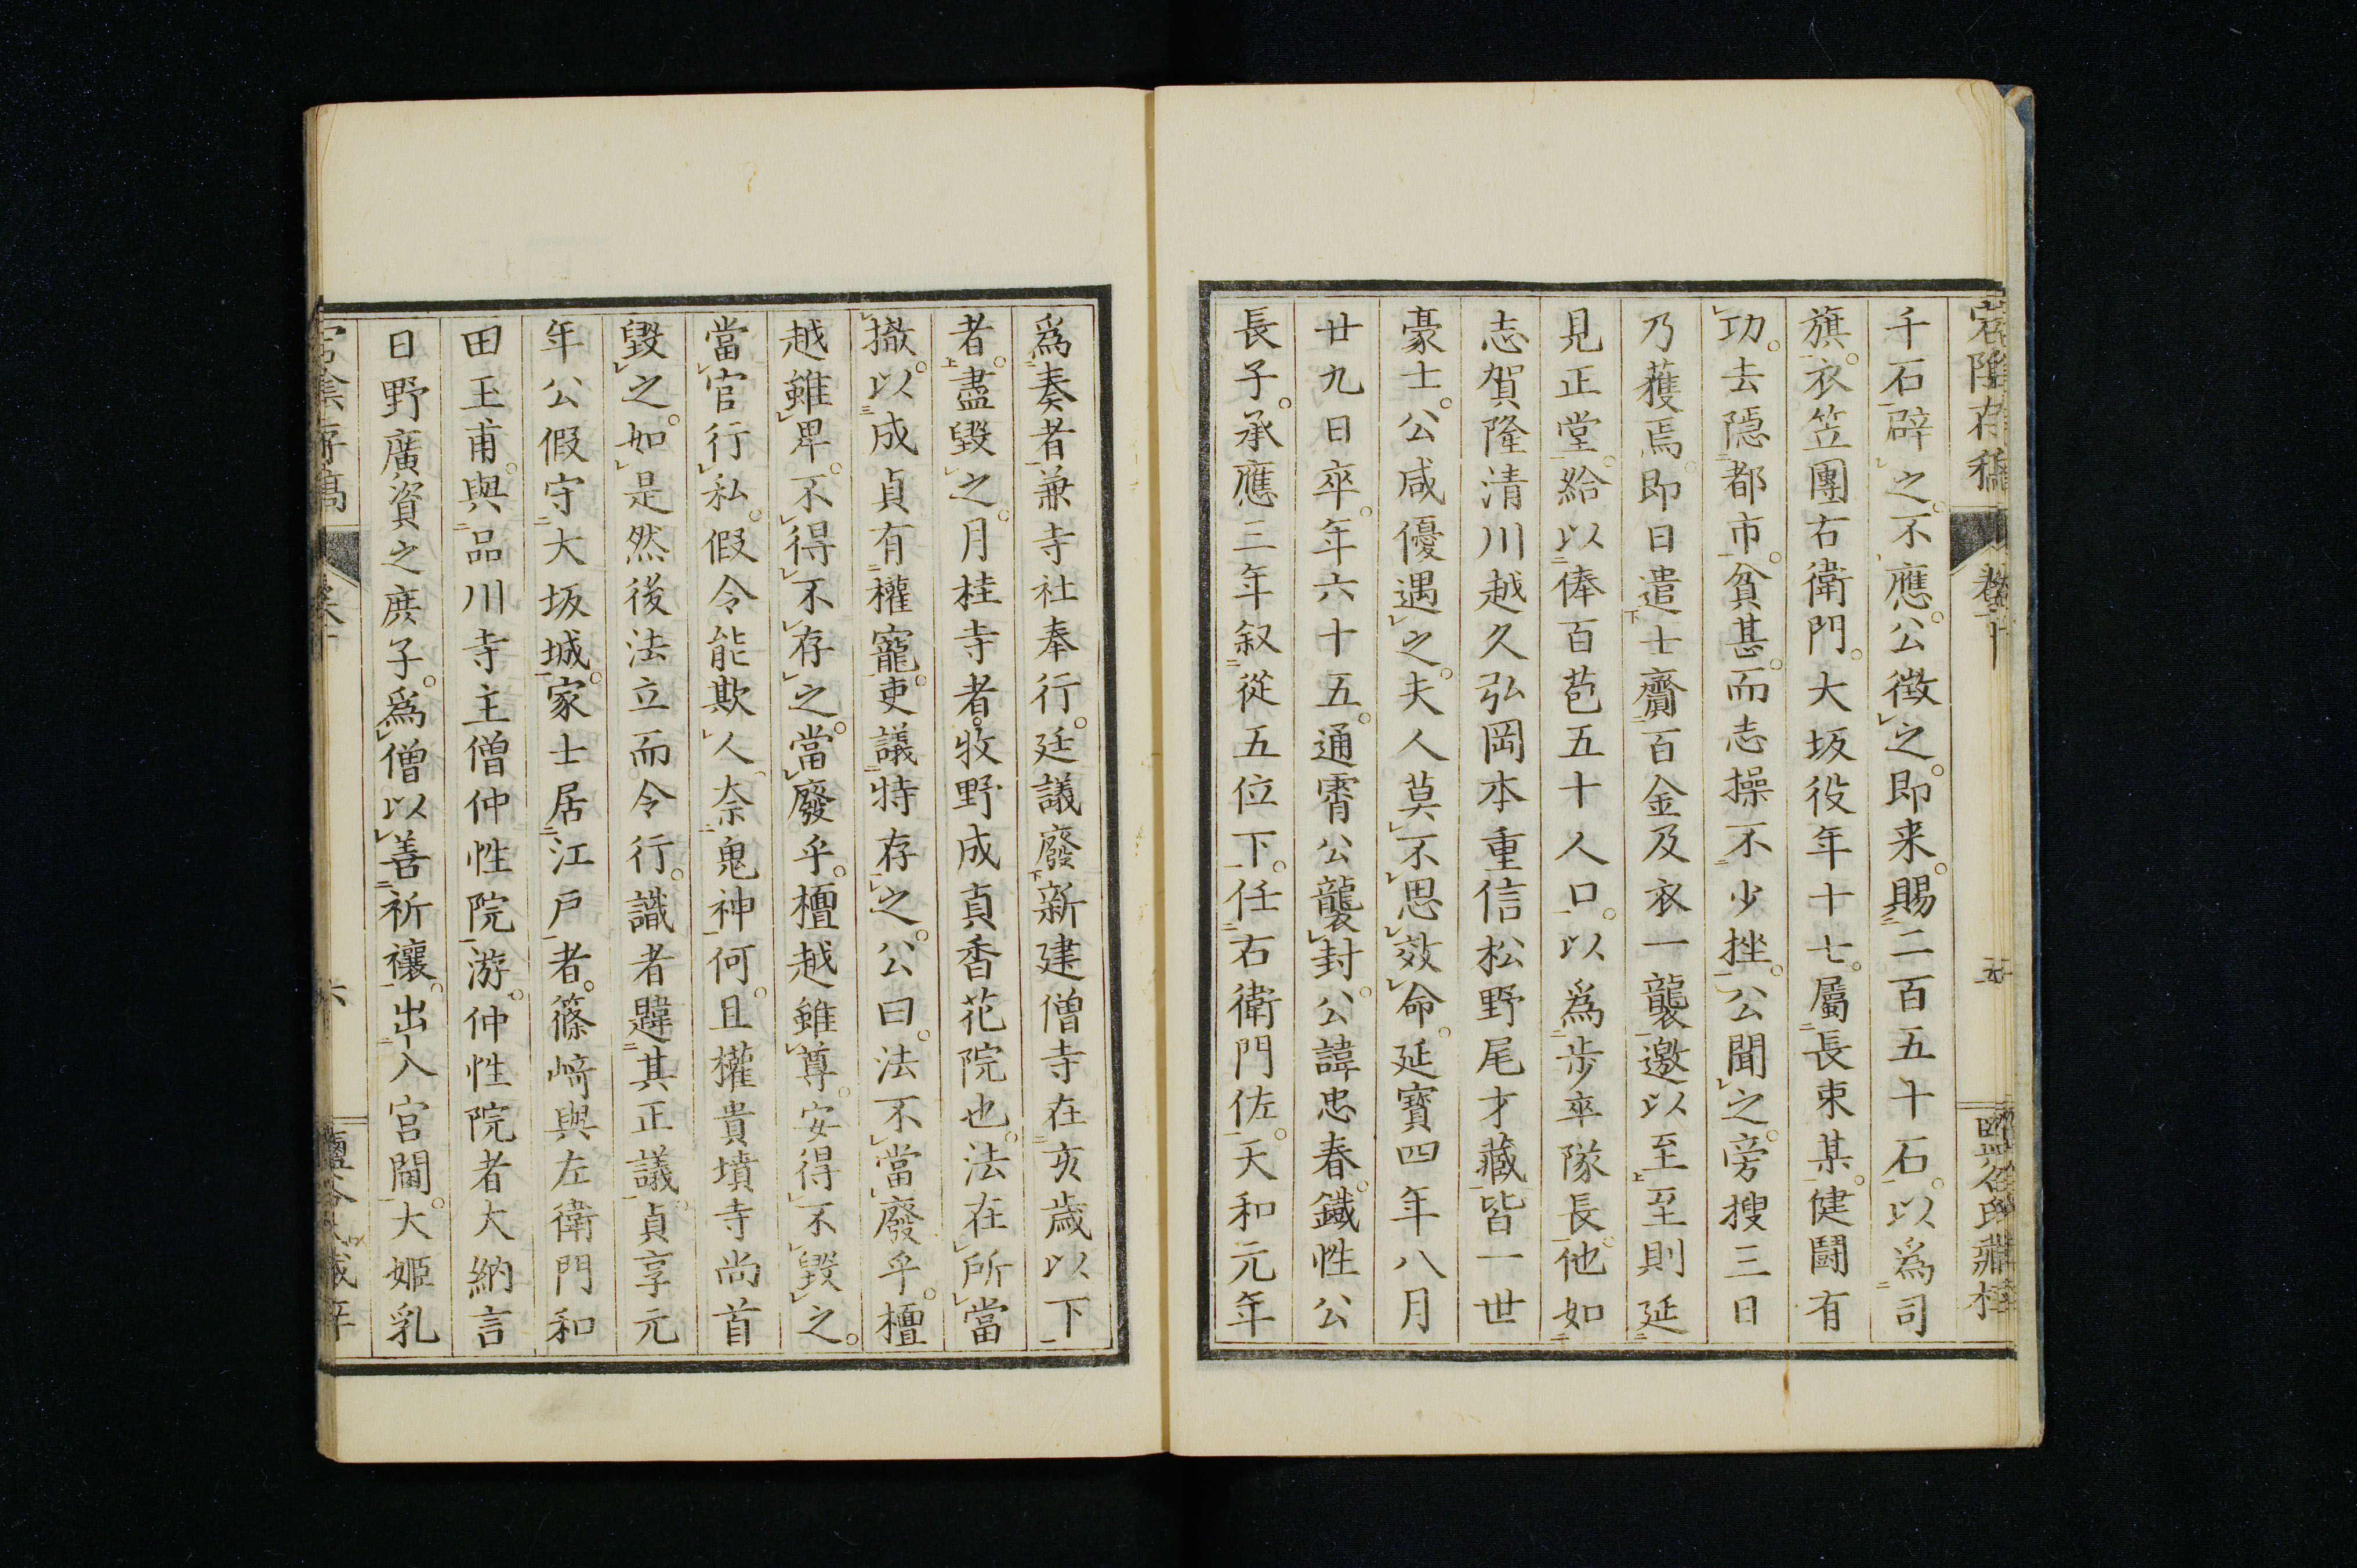 千石辟之。不應。公徴之。即来。賜二百五十石。以爲司
旗。衣笠團右衛門。大坂役年十七。屬長束某。健鬪有
功。去隱都市。貧甚。而志操不少挫。公聞之。旁搜三日
乃獲焉。即日遣士齎百金及衣一襲邀以至至則延
見正堂。給以俸百苞五十人口。以爲歩卒隊長。他如
志賀隆清川越久弘岡本重信松野尾才藏皆一世
豪士。公咸優遇之。夫人莫不思效命。延寶四年八月
廿九日卒。年六十五。通霄公襲封。公諱忠春。鐵性公
長子。承應三年叙從五位下。任右衛門佐。天和元年
爲奏者兼寺社奉行。廷議廢新建僧寺在亥歳以下
者。盡毀之。月桂寺者。牧野成貞香花院也。法在所當
撤。以成貞有權寵。吏議特存之。公曰。法不當廢乎。檀
越雖卑。不得不存之。當廢乎。檀越雖尊。安得不毀之。
當官行私。假令能欺人。奈鬼神何。且權貴墳寺尚首
毀之。如是然後法立而令行。識者韙其正議。貞享元
年公假守大坂城。家士居江戸者。篠﨑與左衛門和
田王甫。與品川寺主僧仲性院游。仲性院者大納言
日野廣資之庶子。爲僧以善祈禳。出入宮闈。大姫乳